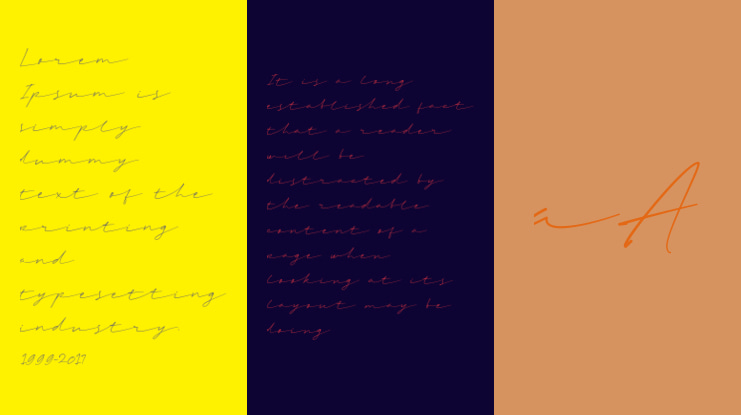 Lorem
Ipsum is
simply
dummy
text of the
printing
and
typesetting
industry.
1999-2017
It is a long
established fact
that a reader
will be
distracted by
the readable
content of a
page when
looking at its
layout may be
doing
A